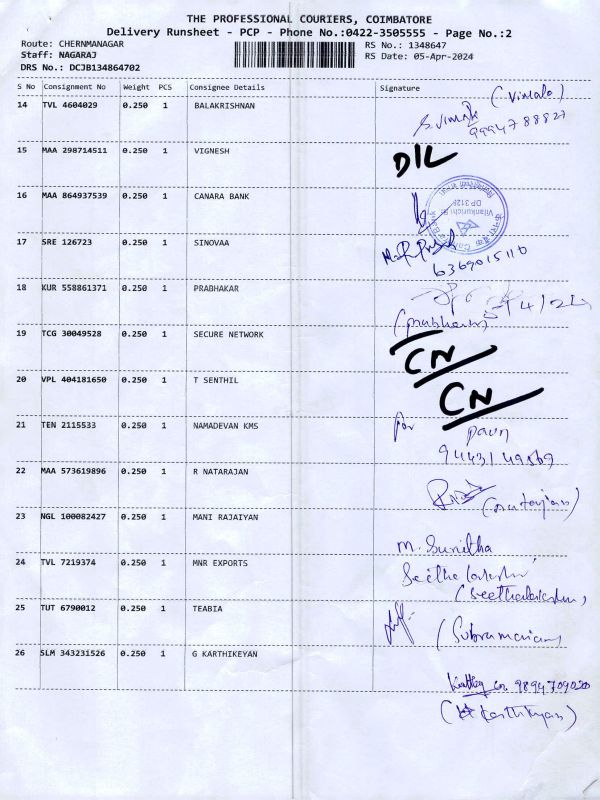 THE PROFESSIONAL COURIERS, COIMBATORE
Delivery Runsheet - PCP - Phone No.:0422-3505555 - Page No.:2
Route: CHERNMANAGAR RS No.: 1348647
Staff: NAGARAJ RS Date: 05-Apr-2024
DRS No.: DCJB134864702
S No Consignment No Weight PCS Consignee Details Signature
14 TVL 4604029 0.250 1 BALAKRISHNAN
(Vimala)
S.Vimala
9994788827
15 MAA 298714511 0.250 1 VIGNESH
DIL
16 MAA 864937539 0.250 1 CANARA BANK
Vilankurichi
DP 3128
17 SRE 126723 0.250 1 SINOVAA
6369015110
18 KUR 558861371 0.250 1 PRABHAKAR
5/4/24
(prabhakar)
19 TCG 30049528 0.250 1 SECURE NETWORK
CN
20 VPL 404181650 0.250 1 T SENTHIL
CN
21 TEN 2115533 0.250 1 NAMADEVAN KMS
for
9443149869
22 MAA 573619896 0.250 1 R NATARAJAN
(natarajan)
23 NGL 100082427 0.250 1 MANI RAJAIYAN
M. Sunitha
24 TVL 7219374 0.250 1 MNR EXPORTS
Seetha lakshmi
(Seethalakshmi,
25 TUT 6790012 0.250 1 TEABIA
(Subramaniam
26 SLM 343231526 0.250 1 G KARTHIKEYAN
9894709020
(Karthikeyan)